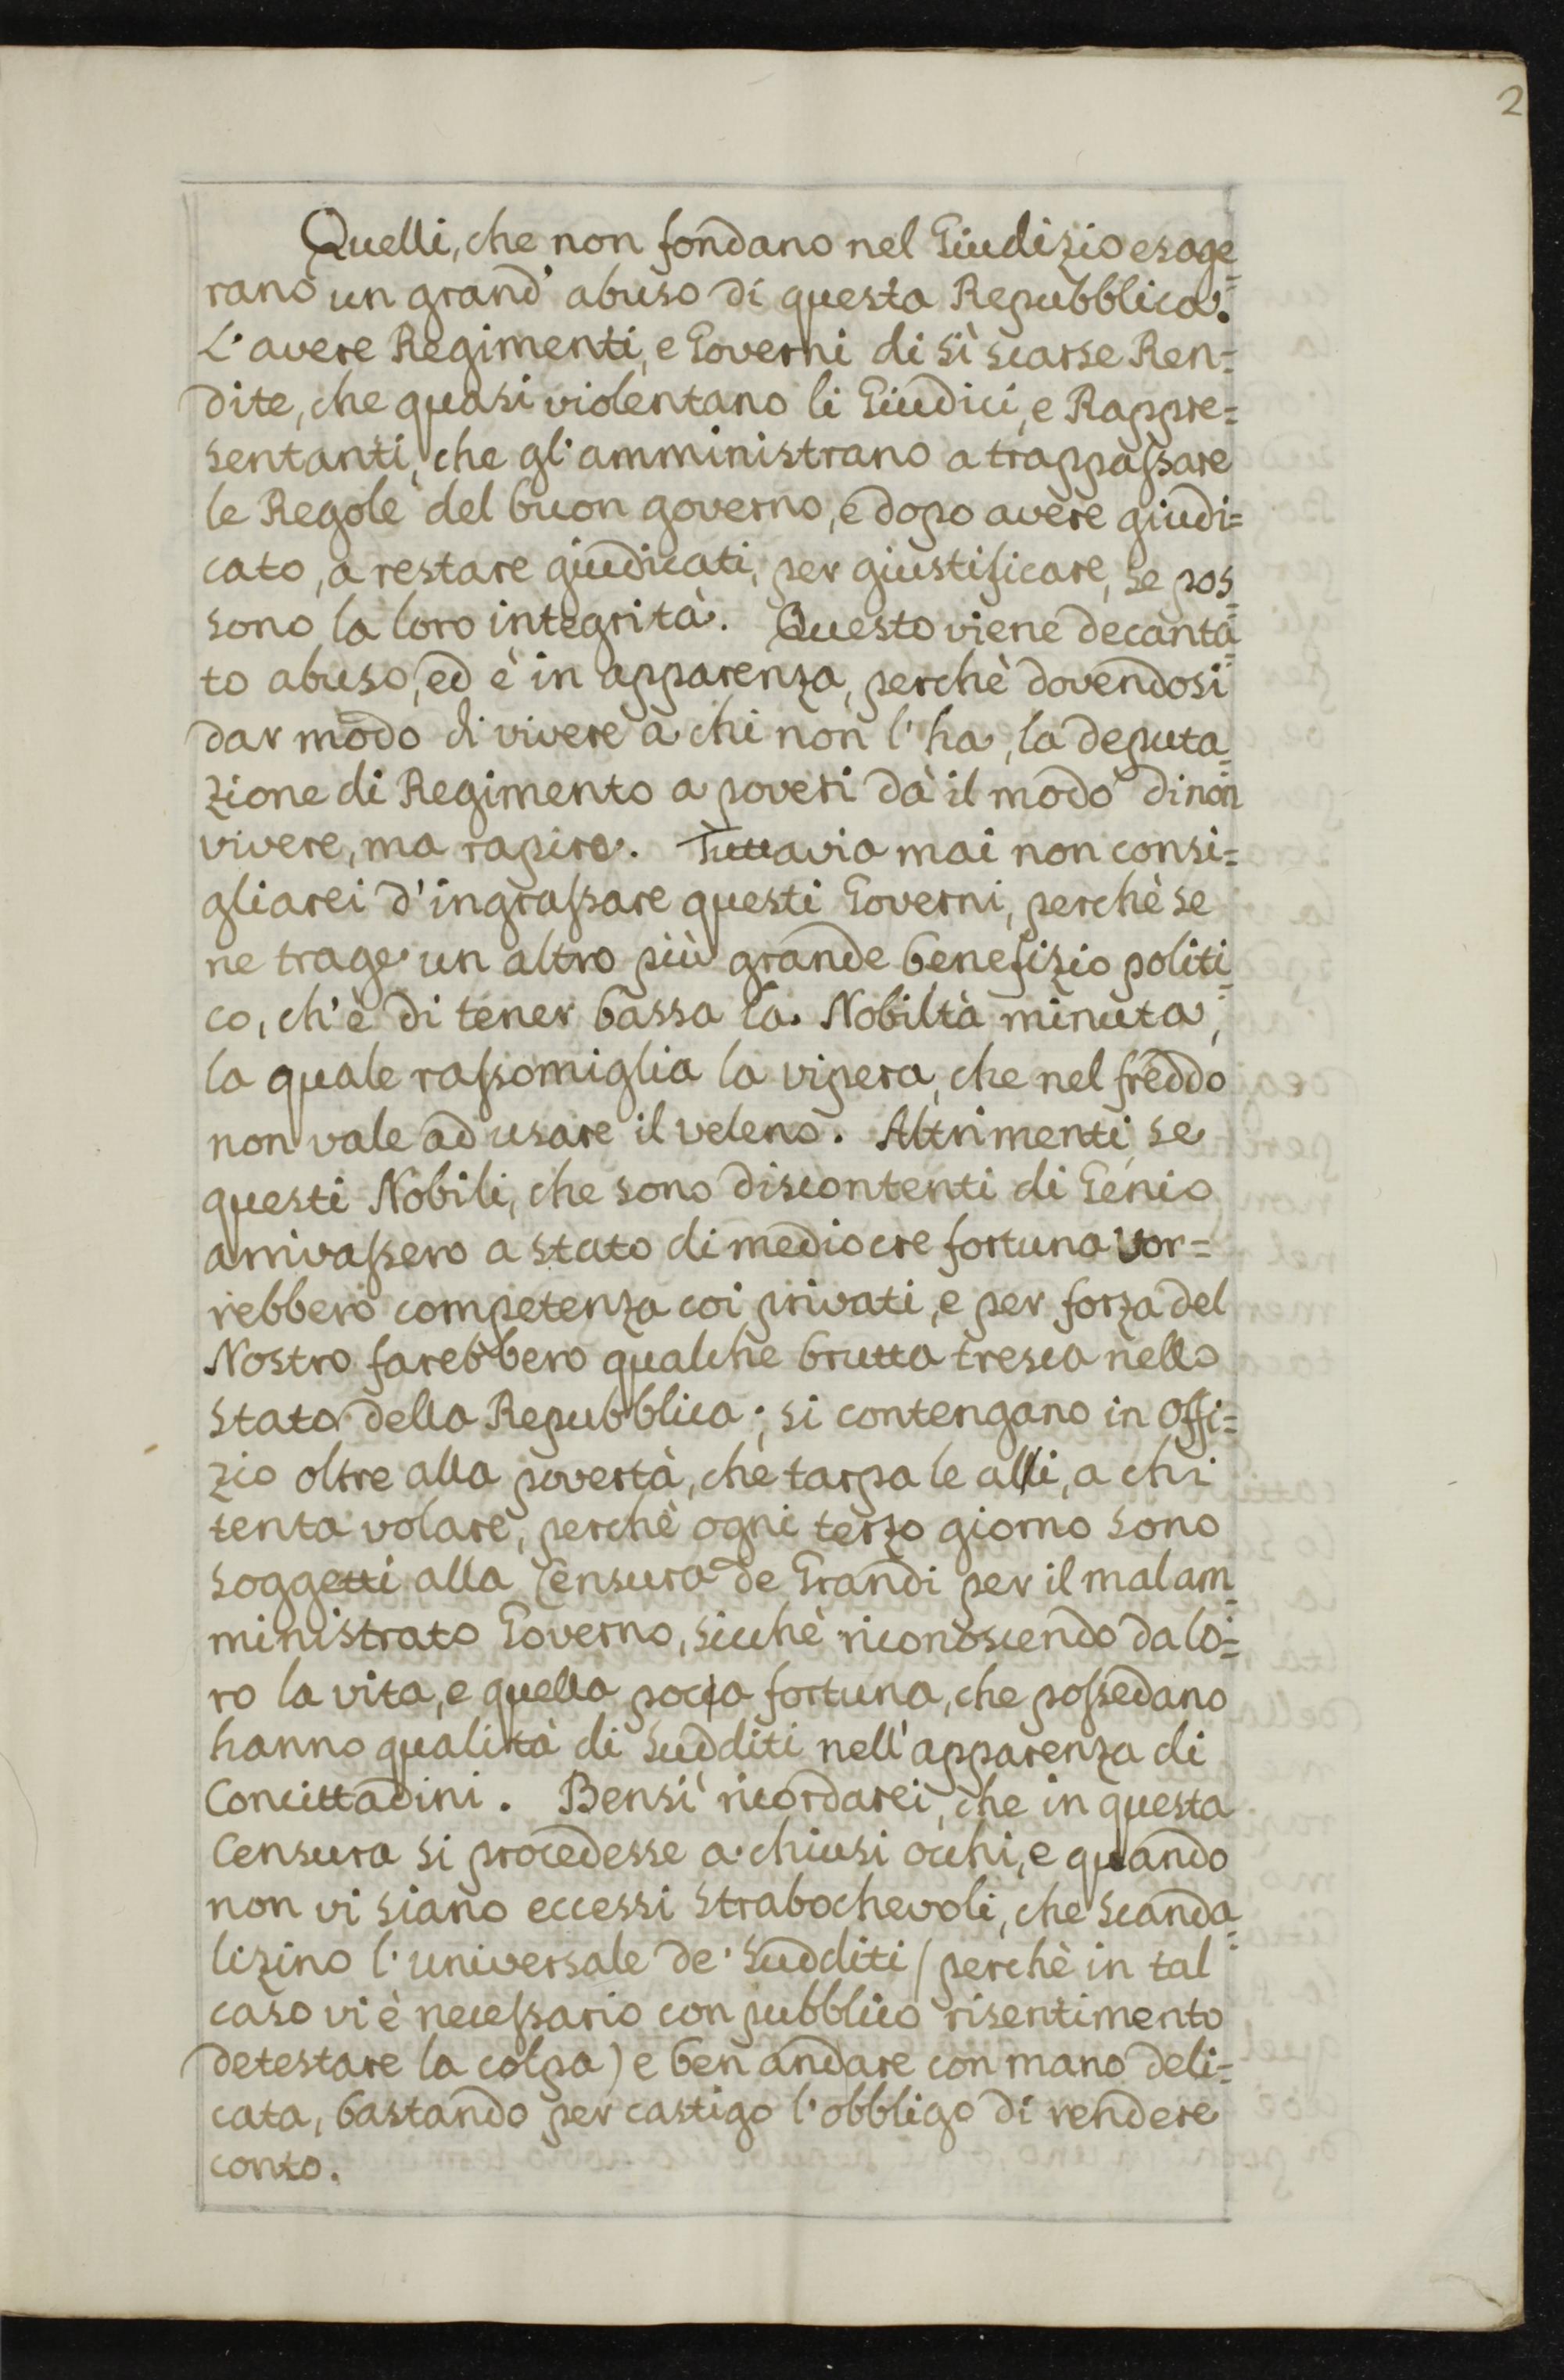 2
Quelli, che non fondano nel Giudizio esage=
rano un grand' abuso di questa Repubblica.
L'avere Regimenti, e Governi di sì scarse Ren=
dite, che quasi violentano li Giudici, e Rappre=
sentanti, che gl'amministrano a trappaſsare
le Regole del buon governo, e dopo avere giudi=
cato, a restare giudicati, per giustificare, se pos=
sono la loro integrità. Questo viene decanta=
to abuso, ed è in apparenza, perchè dovendosi
dar modo di vivere a chi non l'ha, la deputa=
zione di Regimento a poveri dà il modo di non
vivere, ma rapire. Tuttavia mai non consi=
gliarei d'ingraſsare questi Governi, perchè se
ne trage un altro più grande benefizio politi=
co, ch'è di tener bassa la Nobiltà minuta,
la quale raſsomiglia la vipera, che nel freddo
non vale ad usare il veleno. Altrimenti, se
questi Nobili, che sono discontenti di Genio
arrivaſsero a stato di mediocre fortuna vor=
rebbero competenza coi privati, e per forza del
Nostro farebbero qualche brutta tresca nello
Stato della Repubblica; si contengano in Offi=
zio oltre alla povertà, che tarpa le alli, a chi
tenta volare, perchè ogni terzo giorno sono
soggetti alla Censura de Grandi per il mal am=
ministrato Governo, sicchè riconoscendo da lo=
ro la vita, e quella pocia fortuna, che poſsedano
hanno qualità di Sudditi nell'apparenza di
Concittadini. Bensì ricordarei, che in questa
Censura si procedesse a chiusi occhi, e quando
non vi siano eccessi strabochevoli, che scanda=
lizino l'universale de' Sudditi (perchè in tal
caso vi è neceſsario con pubblico risentimento
detestare la colpa) e ben andare con mano deli=
cata, bastando per castigo l'obbligo di rendere
conto.